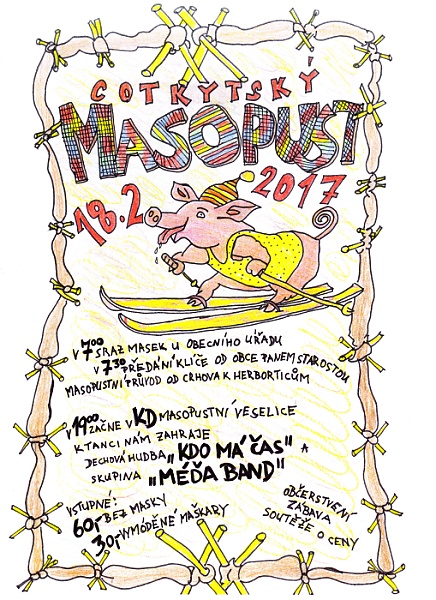 COTKYTSKÝ
MASOPUST
18.2 2017
V 7 00 SRAZ MASEK U OBECNÍHO ÚŘADU
V 7 30 PŘEDÁNÍ KLÍČE OD OBCE PANEM STAROSTOU
MASOPUSTNÍ PRŮVOD OD CRHOVA K HERBORTICŮM
V 19 00 ZAČNE V KD MASOPUSTNÍ VESELICE
K TANCI NÁM ZAHRAJE
DECHOVÁ HUDBA „KDO MÁ ČAS" A
SKUPINA „MÉĎA BAND"
VSTUPNÉ:
60,- BEZ MASKY
30,- VYMÓDĚNÉ MAŠKARY
OBČERSTVENÍ
ZÁBAVA
SOUTĚŽE O CENY